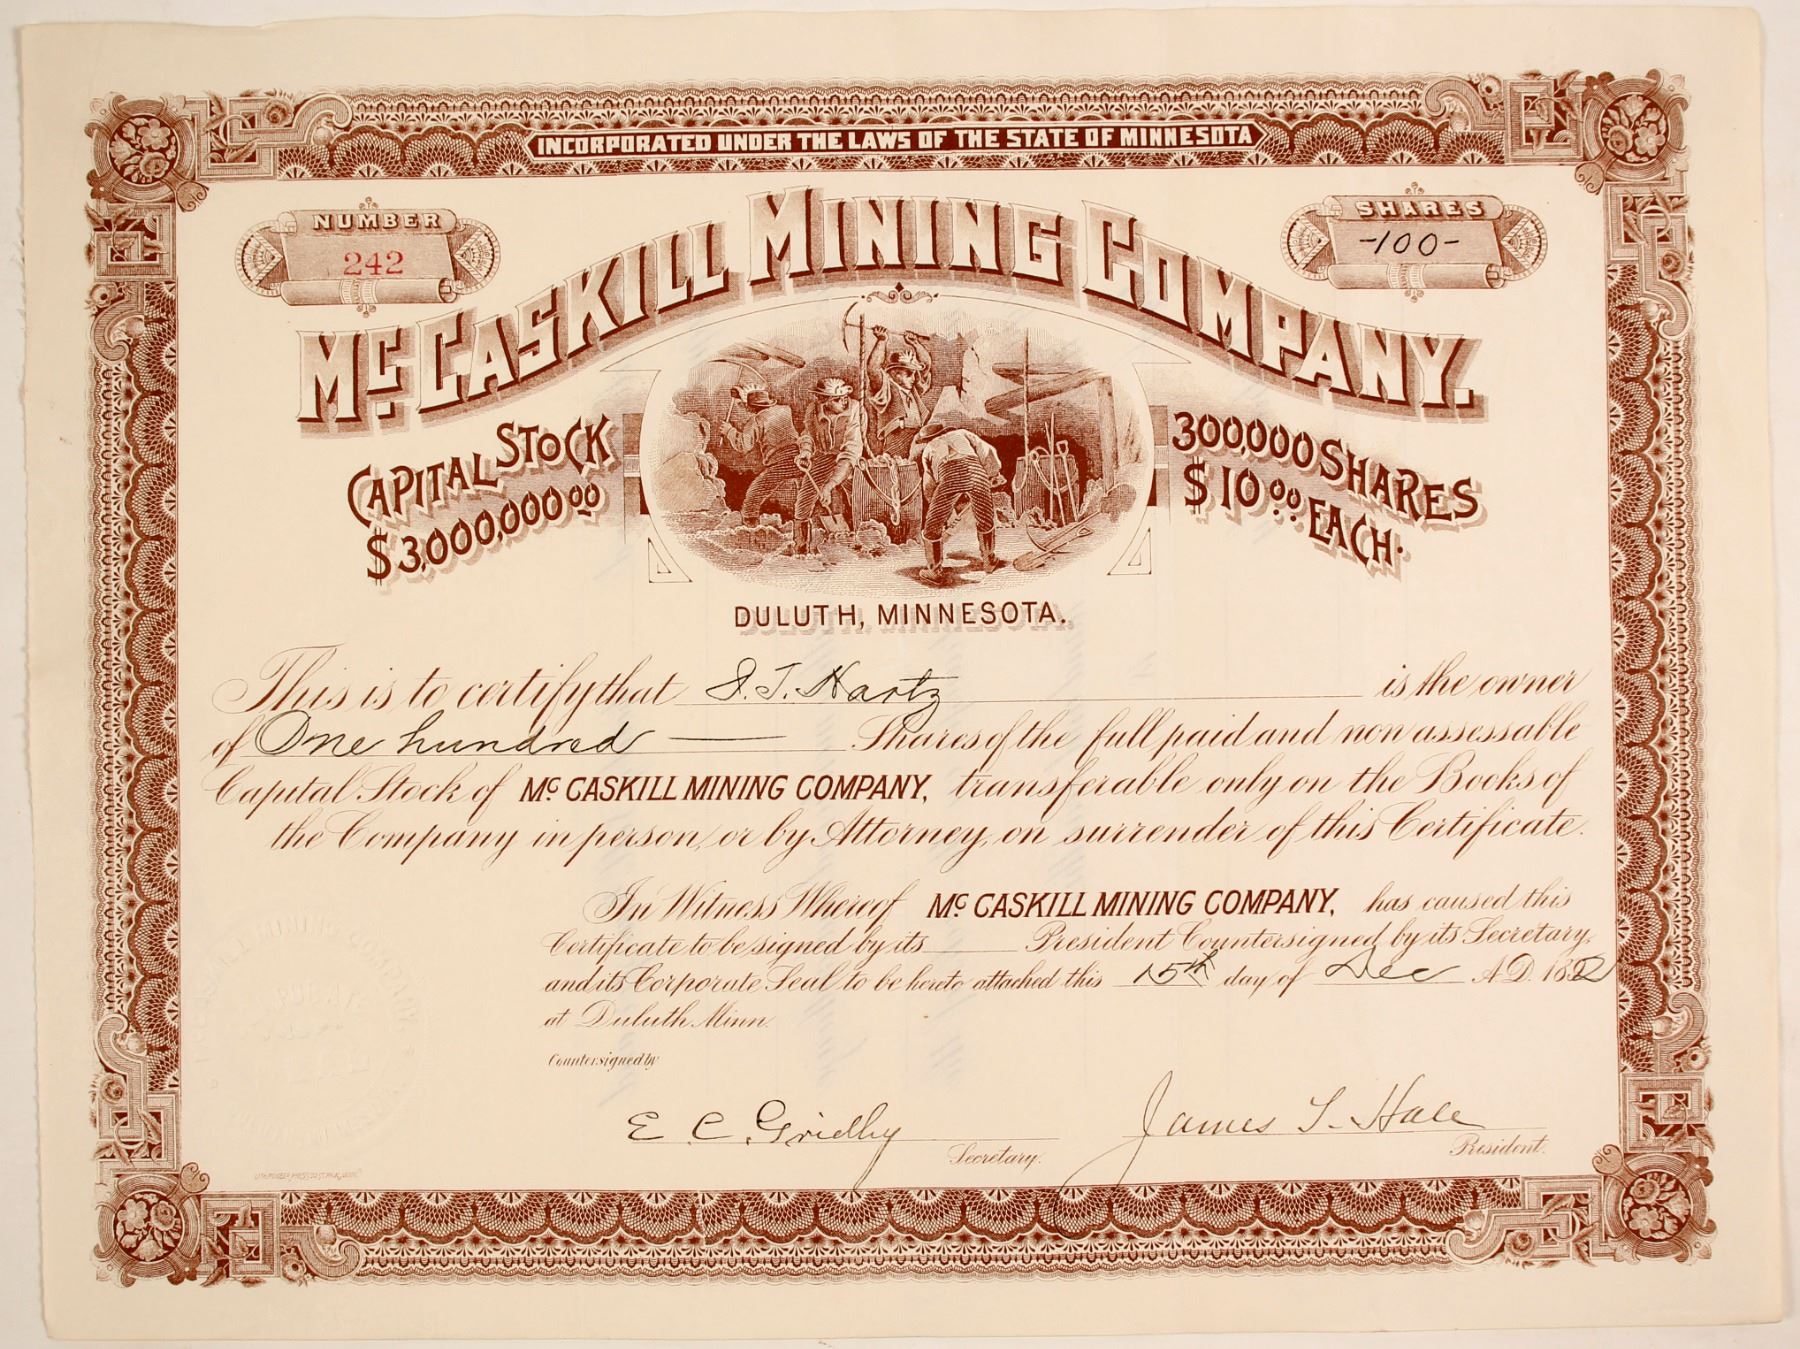 INCORPORATED UNDER THE LAWS OF THE STATE OF MINNESOTA
NUMBER
242
SHARES
-100-
Mc CASKILL MINING COMPANY.
CAPITAL STOCK
$3,000,000.00
300,000 SHARES
$10.00 EACH.
DULUTH, MINNESOTA.
This is to certify that S. T. Hartz is the owner
of One hundred Shares of the full paid and non assessable
Capital Stock of Mc CASKILL MINING COMPANY, transferable only on the Books of
the Company in person, or by Attorney, on surrender of this Certificate.
In Witness Whereof Mc CASKILL MINING COMPANY, has caused this
Certificate to be signed by its President Countersigned by its Secretary,
and its Corporate Seal to be hereto attached this 15th day of Dec A.D. 18
at Duluth, Minn.
Countersigned by
E. C. Gridley
Secretary.
James T. Hale
President.